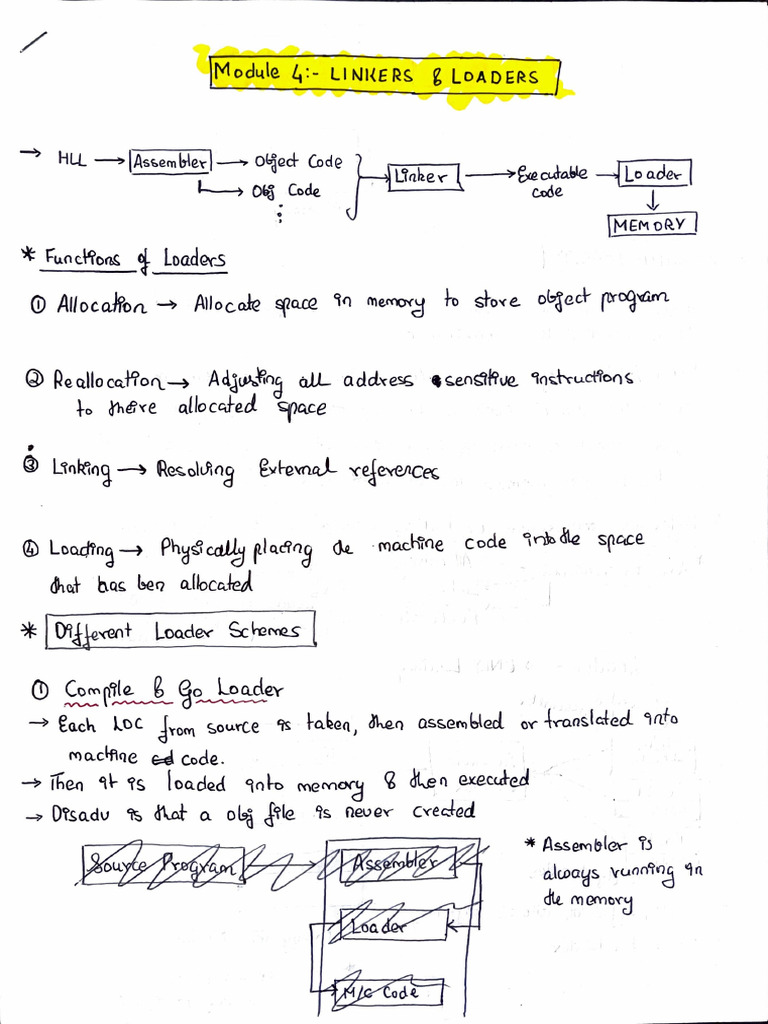 Module 4:- LINKERS & LOADERS
→ HLL → Assembler → Object Code
→ Obj Code
Linker → Executable code → Loader
MEMORY
* Functions of Loaders
① Allocation → Allocate space in memory to store object program
② Reallocation → Adjusting all address sensitive instructions
to theire allocated space
③ Linking → Resolving External references
④ Loading → Physically placing the machine code into the space
that has ben allocated
* Different Loader Schemes
① Compile & Go Loader
→ Each LOC from source is taken, then assembled or translated into
machine code.
→ Then it is loaded into memory & then executed
→ Disadv is that a obj file is never created
Source Program → Assembler
Loader
M/C Code
* Assembler is
always running in
the memory